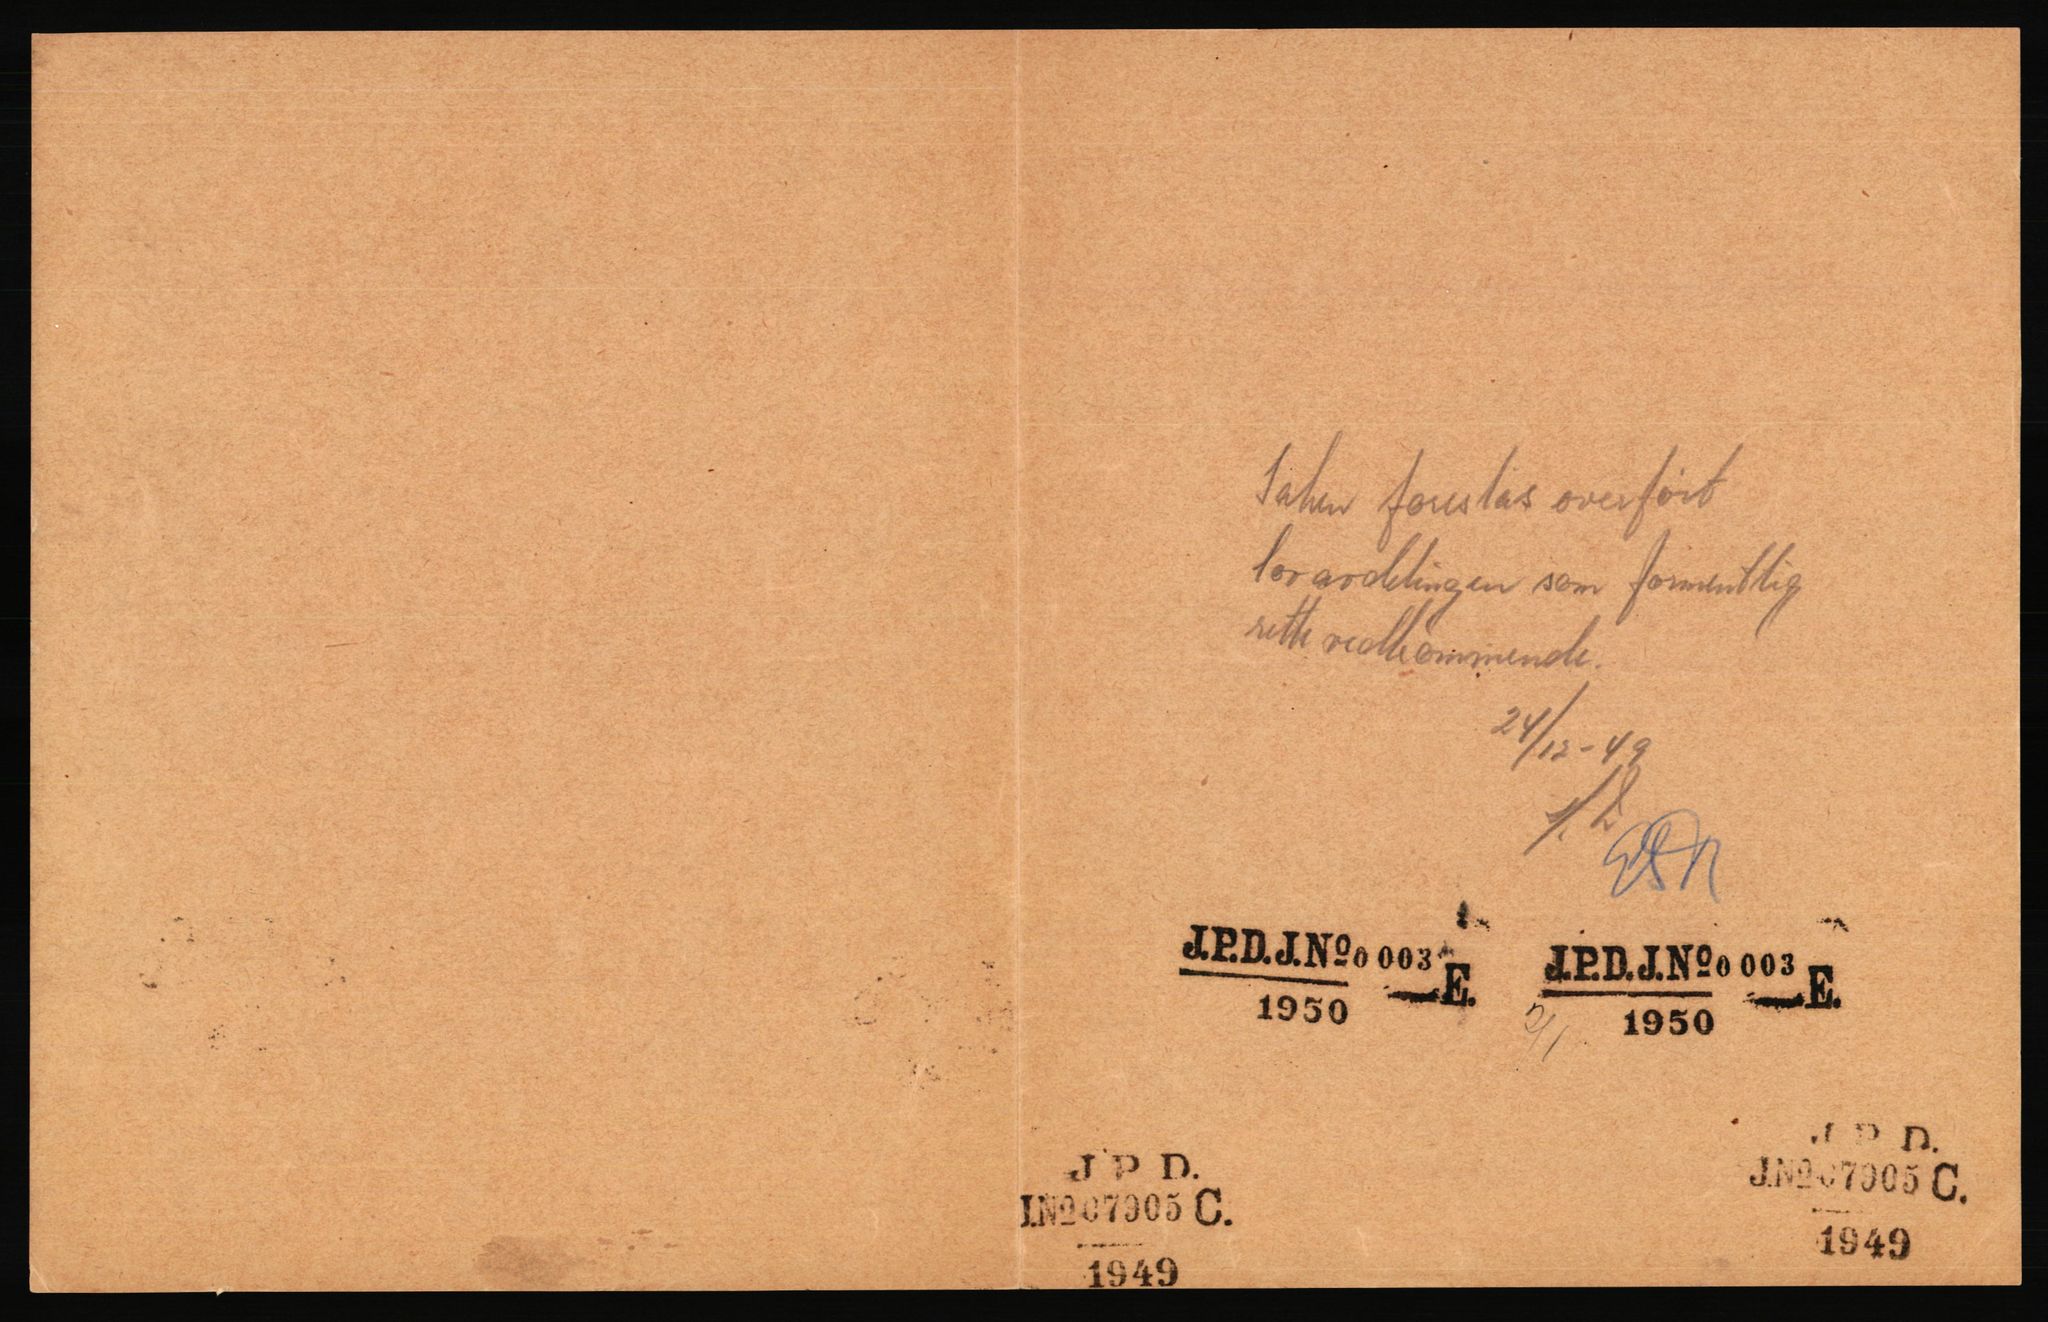 Saken foreslås overført
lovavdelingen som formentlig
rette vedkommende.
24/12-49
J.P.D.J.Nº 0 003 E.
1950
J.P.D.J.Nº 0 003 E.
1950
5/1
J P D.
J.Nº 07905 C.
1949
J P D.
J.Nº 07905 C.
1949